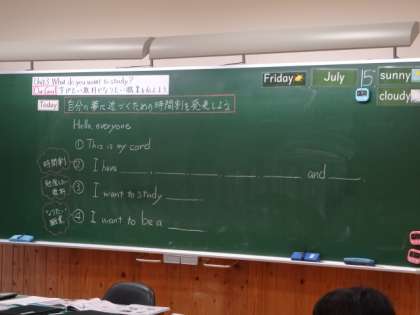 Unit 5 What do you want to study?
Our Goal 学びたい教科やなりたい職業を伝えよう
Today 自分の夢に近づくための時間割を発表しよう
Friday July 15 sunny
cloudy
Hello, everyone
① This is my card
時間割 ② I have ____, ____, ____, ____ and ____.
勉強したい教科 ③ I want to study ____
なりたい職業 ④ I want to be a ____